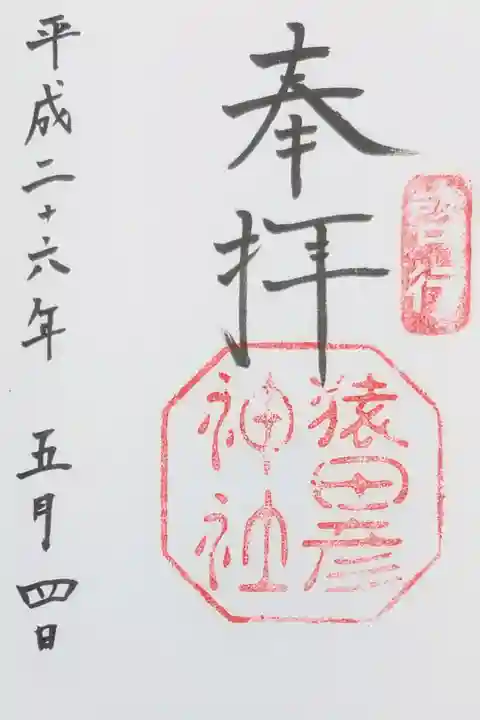 奉拝
啓行
猿田彦
神社
平成二十六年 五月四日